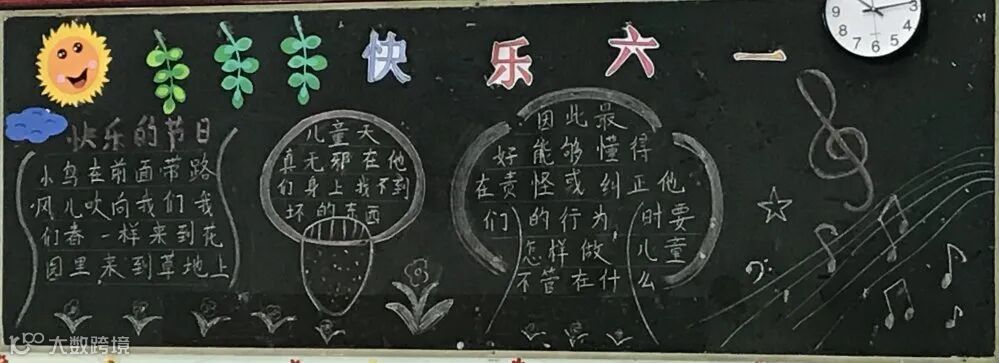 快乐六一
快乐的节日
小鸟在前面带路
风儿吹向我们我
们春一样来到花
园里来到草地上
儿童天
真无邪在他
们身上找不到
坏的东西
因此最
好能够懂得
在责怪或纠正他
们的行为,时要
怎样做儿童
不管在什么
2
3
4
5
6
7
8
9
大数跨境